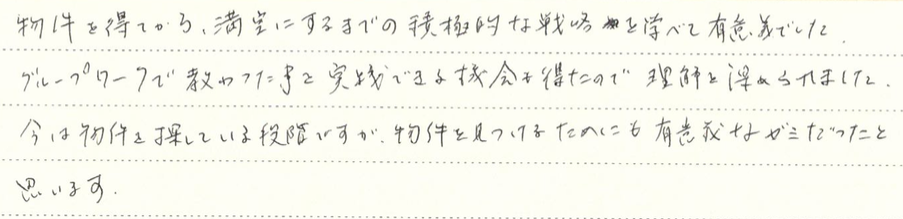 物件を得てから、満室にするまでの積極的な戦略を学べて有意義でした。
グループワークで教わった事を実践できる機会を得たので理解を深められました。
今は物件を探している段階ですが、物件を見つけるためにも有意義なゼミだったと
思います。